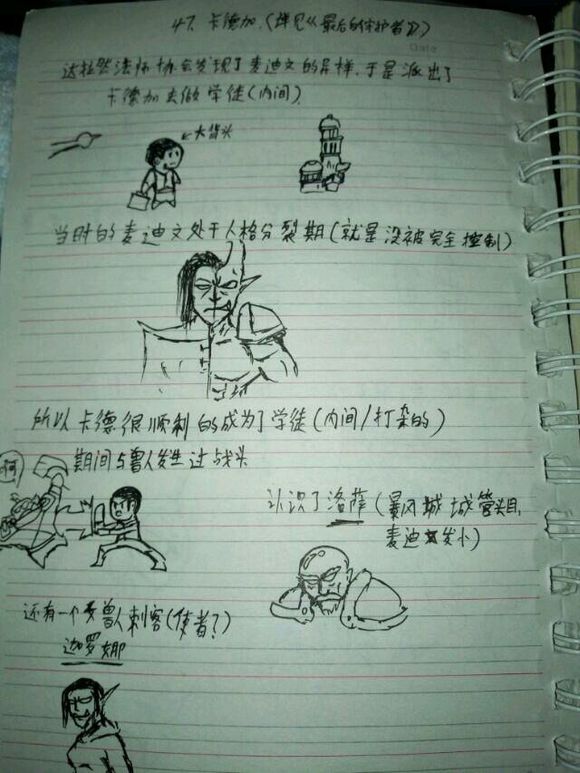 47. 卡德加.(详见《最后的守护者》)
Date
达拉然法师协会发现了麦迪文的异样,于是派出了
卡德加去做学徒(内间)
大背头
当时的麦迪文处于人格分裂期(就是没被完全控制)
所以卡德很顺利的成为了学徒(内间/打杂的)
期间与兽人发生过战斗
啊
认识了洛萨(暴风城城管头目,
麦迪文发小)
还有一个兽人刺客(使者?)
迦罗娜